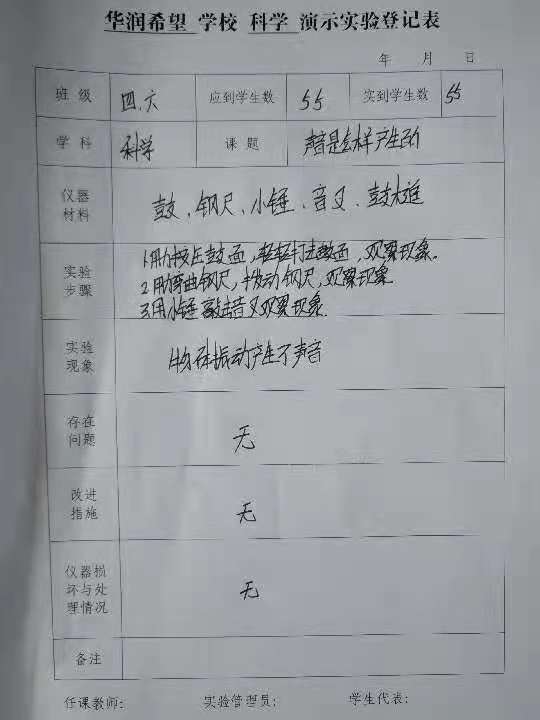 华润希望 学校 科学 演示实验登记表
年 月 日
班级 四.六 应到学生数 55 实到学生数 55
学科 科学 课题 声音是怎样产生的
仪器材料 鼓、钢尺、小锤、音叉、鼓槌
实验步骤 1用力按压鼓面,轻轻打击鼓面,观察现象。
2用力弯曲钢尺,拨动钢尺,观察现象
3.用小锤敲击音叉观察现象.
实验现象 物体振动产生了声音
存在问题 无
改进措施 无
仪器损坏与处理情况 无
备注
任课教师: 实验管理员: 学生代表: